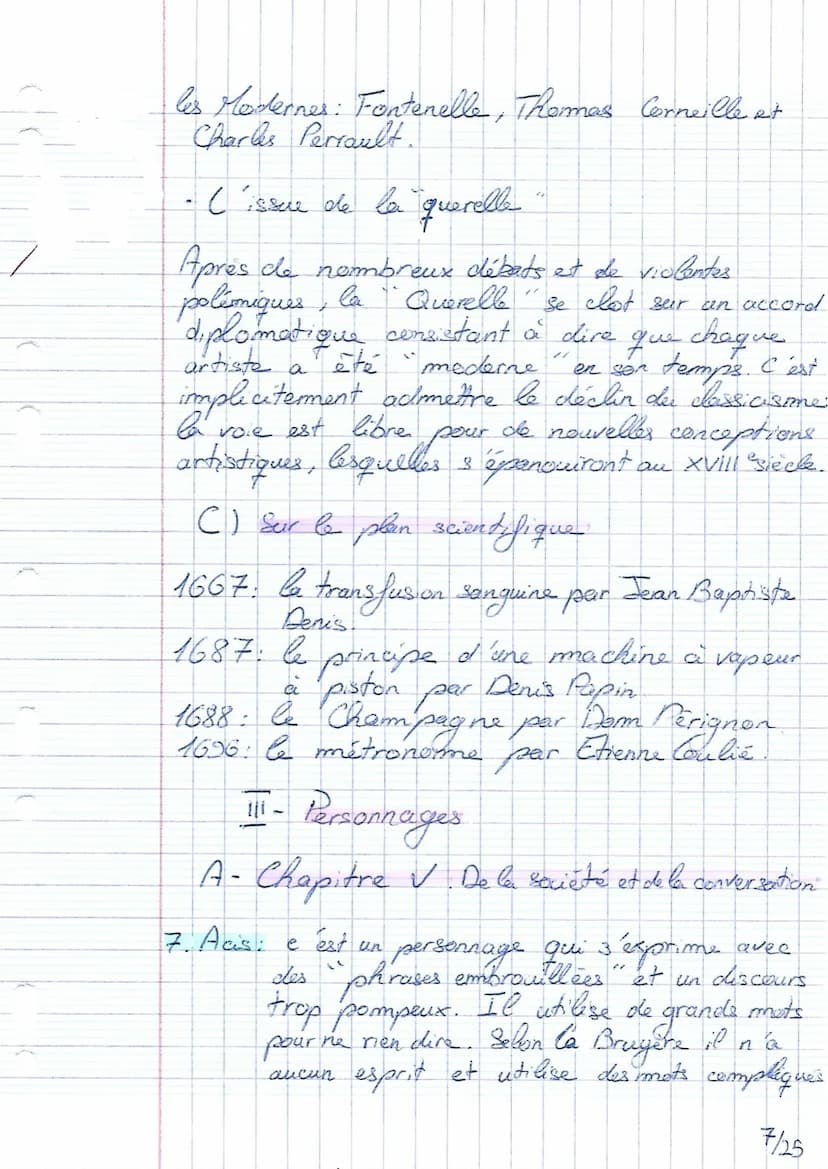 les Modernes : Fontenelle, Thomas Corneille et
Charles Perrault.
- L'issue de la "querelle"
Après de nombreux débats et de violentes
polémiques, la "Querelle" se clot sur un accord
diplomatique consistant à dire que chaque
artiste a été "moderne" en son temps. C'est
implicitement admettre le déclin du classicisme:
la voie est libre pour de nouvelles conceptions
artistiques, lesquelles s'épanouiront au XVIII e siècle.
C) Sur le plan scientifique
1667: la transfusion sanguine par Jean Baptiste
Denis.
1687: le principe d'une machine à vapeur
à piston par Denis Papin
1688: le Champagne par Dom Pérignon
1696: le métronome par Etienne Loulié.
III - Personnages
A - Chapitre V : De la société et de la conversation
7. Acis: c'est un personnage qui s'exprime avec
des "phrases embrouillées" et un discours
trop pompeux. Il utilise de grands mots
pour ne rien dire. Selon La Bruyère il n'a
aucun esprit et utilise des mots compliqués
7/25